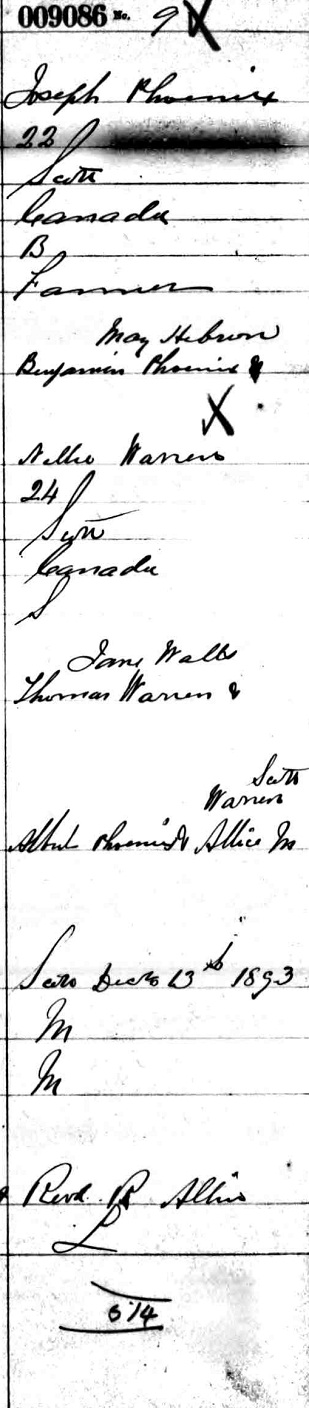 009086 No. 9 X
Joseph Phoenix
22
Scott
Canada
B
Farmer
May Hebron
Benjamin Phoenix &
X
Nellie Warren
24
Scott
Canada
S
Jane Watts
Thomas Warren &
Scott
Warren
Albert Phoenix & Allice M
Scott Dec 13th 1893
M
M
Revd R Allin
L
614